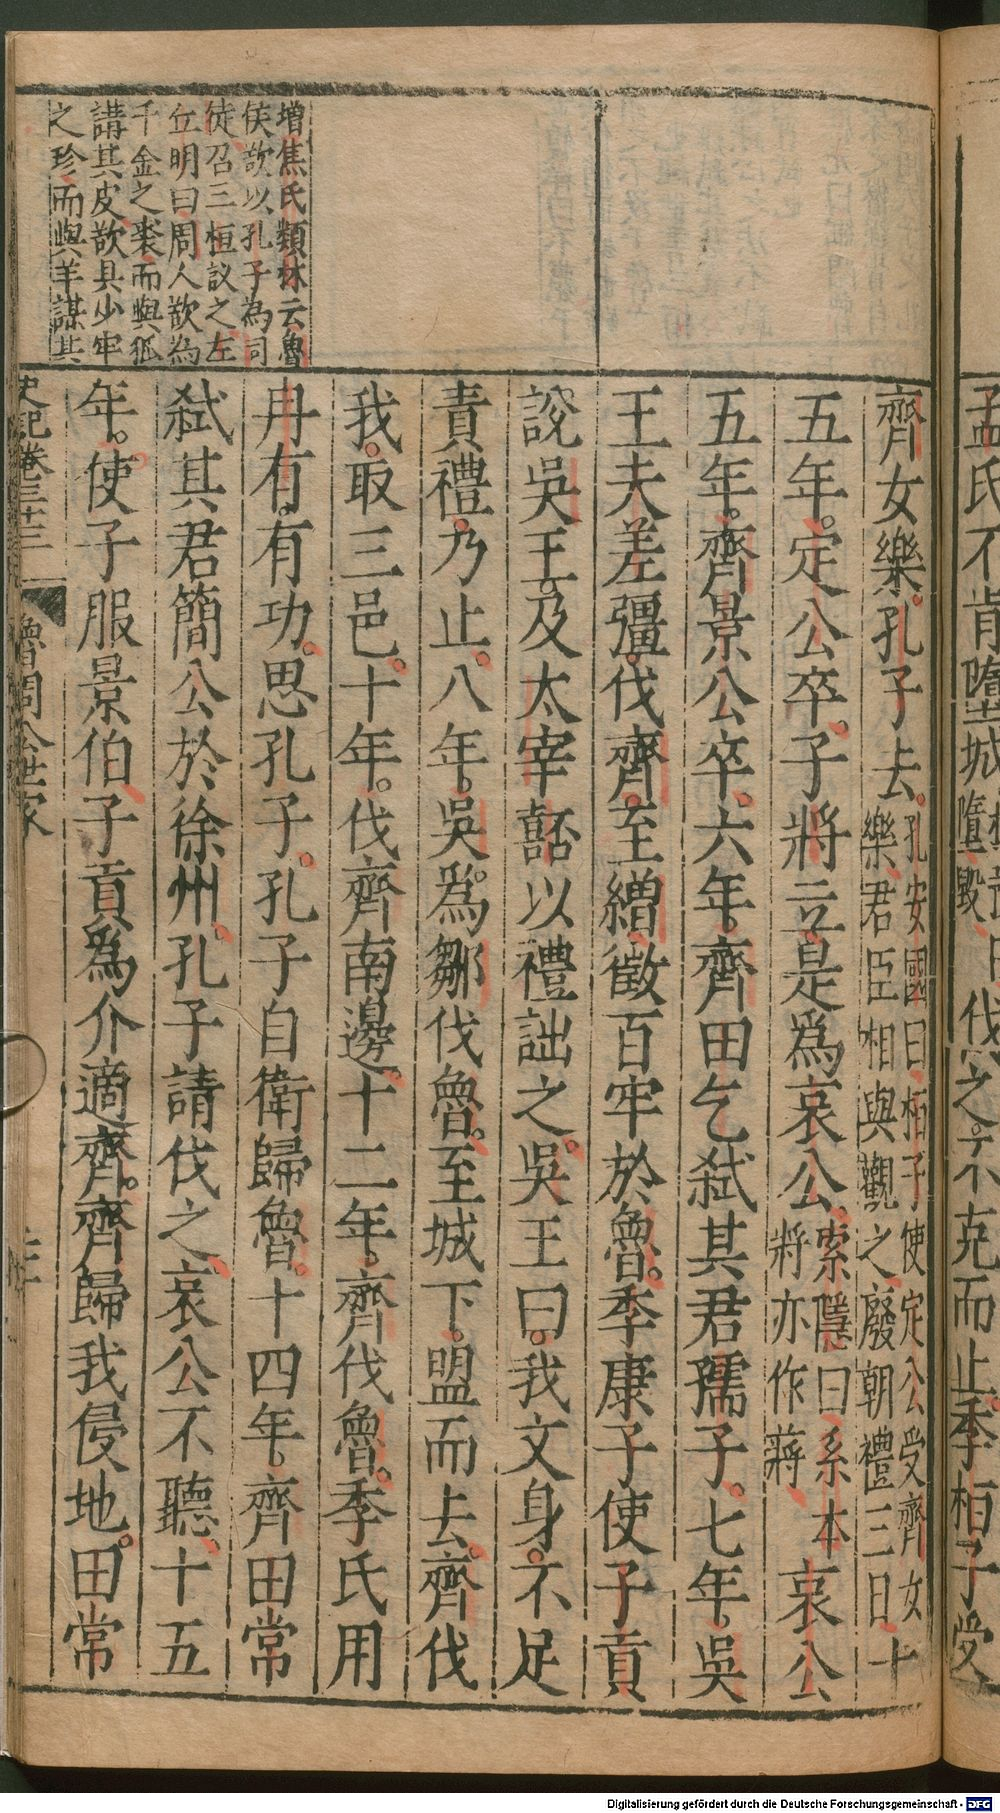 孟氏不肯墮城
伐之不克而止季桓子受
齊女樂孔子去孔安國曰桓子使定公受齊女
樂君臣相與觀之廢朝禮三日十
五年定公卒子將立是爲哀公索隱曰系本
將亦作蔣哀公
五年齊景公卒六年齊田乞弒其君孺子七年吳
王夫差彊伐齊至繒徵百牢於魯季康子使子貢
說吳王及太宰嚭以禮詘之吳王曰我文身不足
責禮乃止八年吳爲鄒伐魯至城下盟而去齊伐
我取三邑十年伐齊南邊十二年齊伐魯季氏用
冉有有功思孔子孔子自衛歸魯十四年齊田常
弒其君簡公於徐州孔子請伐之哀公不聽十五
年使子服景伯子貢爲介適齊齊歸我侵地田常
增焦氏類林云魯
侯欲以孔子為司
徒召三桓議之左
丘明曰周人欲為
千金之裘而與狐
講其皮欲具少牢
之珍而與羊謀其
史記卷三十三
魯周公世家
Digitalisierung gefördert durch die Deutsche Forschungsgemeinschaft - DFG